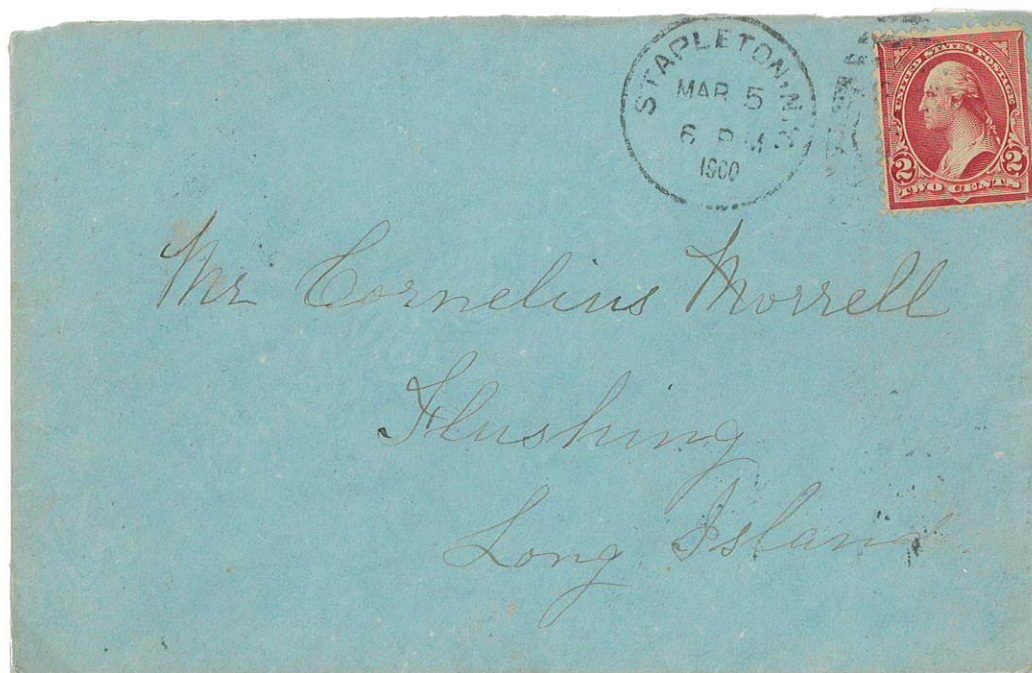 STAPLETON, N.Y.
MAR 5
6 P M
1900
UNITED STATES POSTAGE
2 2
TWO CENTS
Mr Cornelius Morrell
Flushing
Long Island